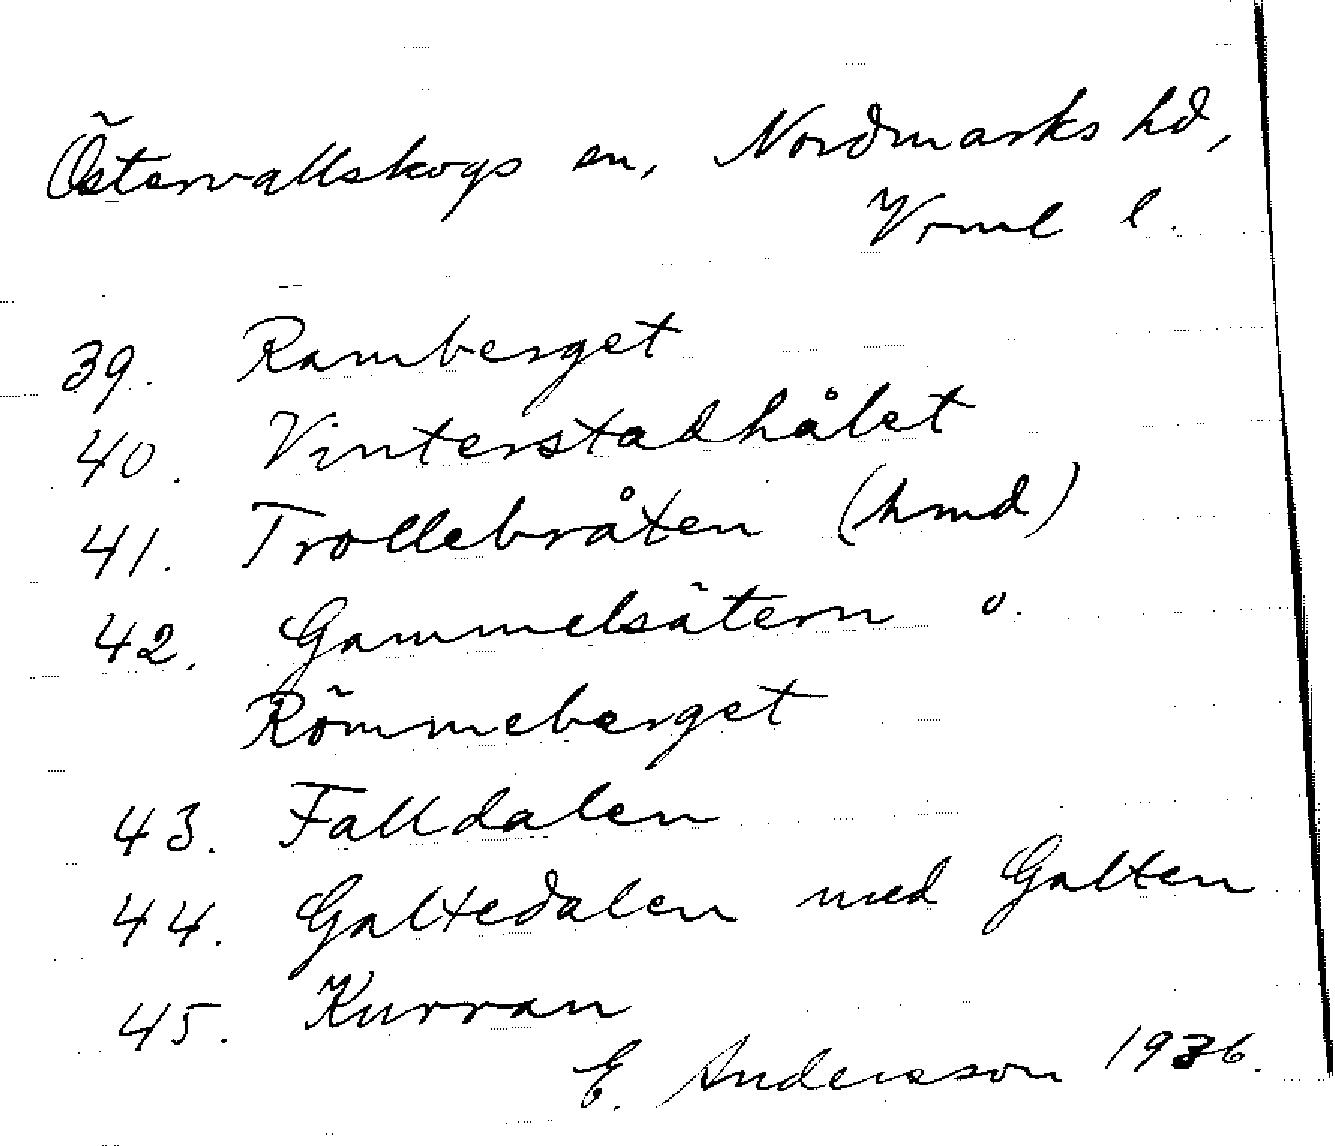 Östervallskogs sn, Nordmarks hd,
Vrml l.
39. Ramberget
40. Vinterstadhålet
41. Trollebråten (hmd)
42. Gammelsätern o.
Römmeberget
43. Falldalen
44. Galtedalen med Galten
45. Kurran
E. Andersson 1936.